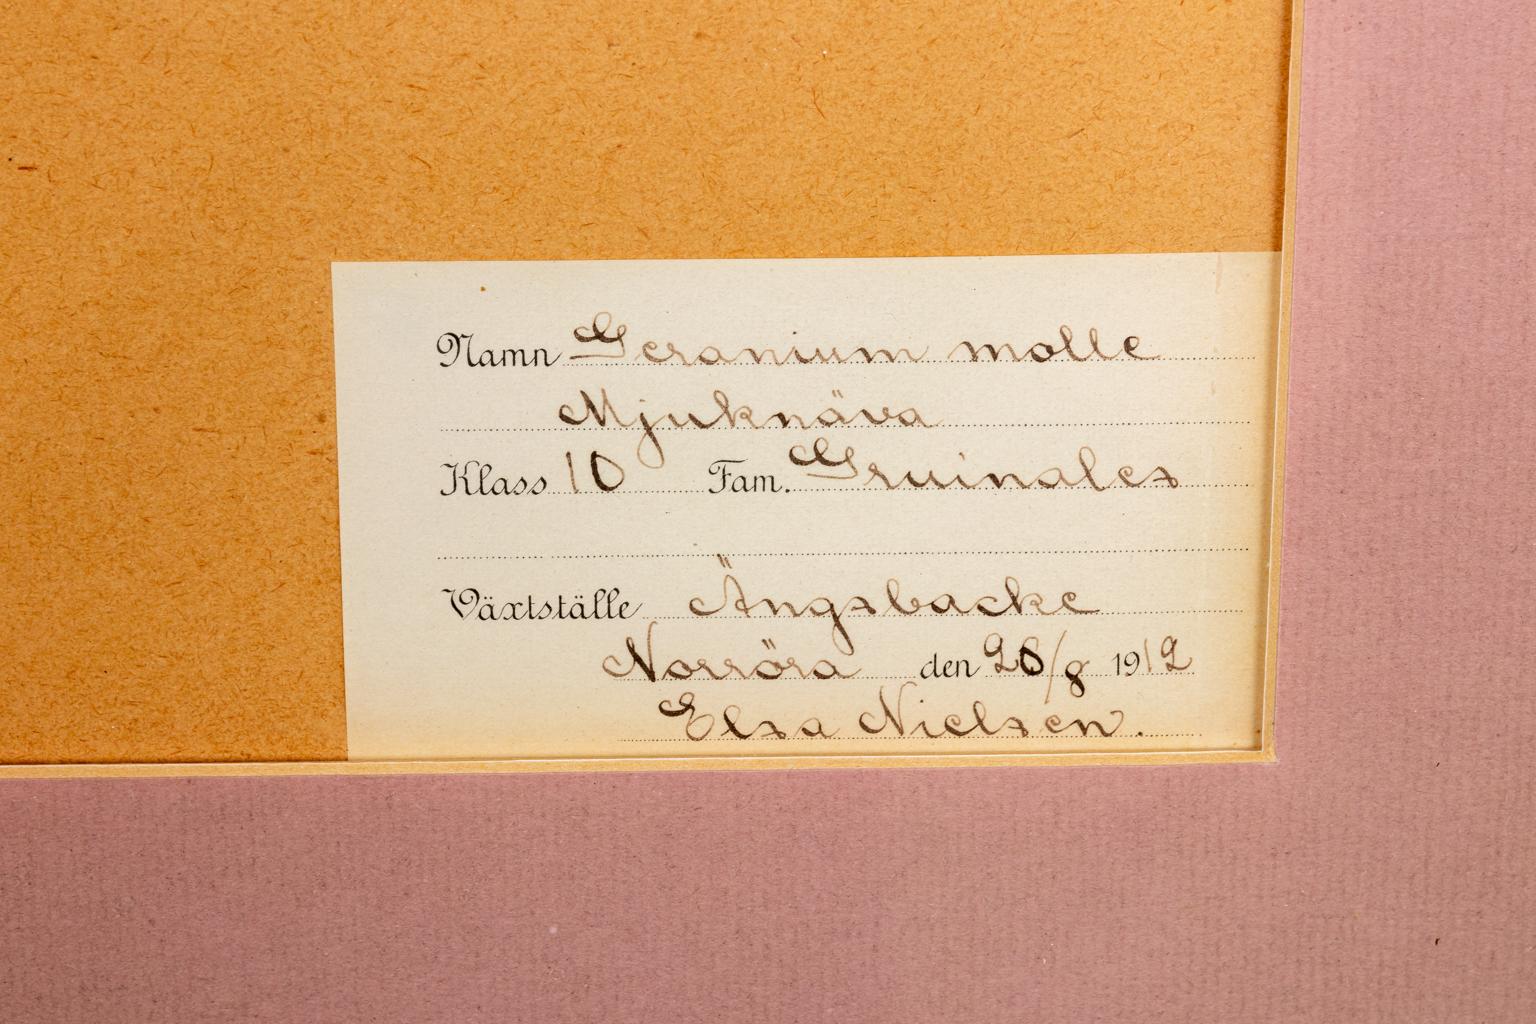 Namn Geranium molle
Mjuknäva
Klass 10 Fam. Gruinales
Växtställe Ängsbacke
Norröra den 26/8 1912
Elsa Nielsen.